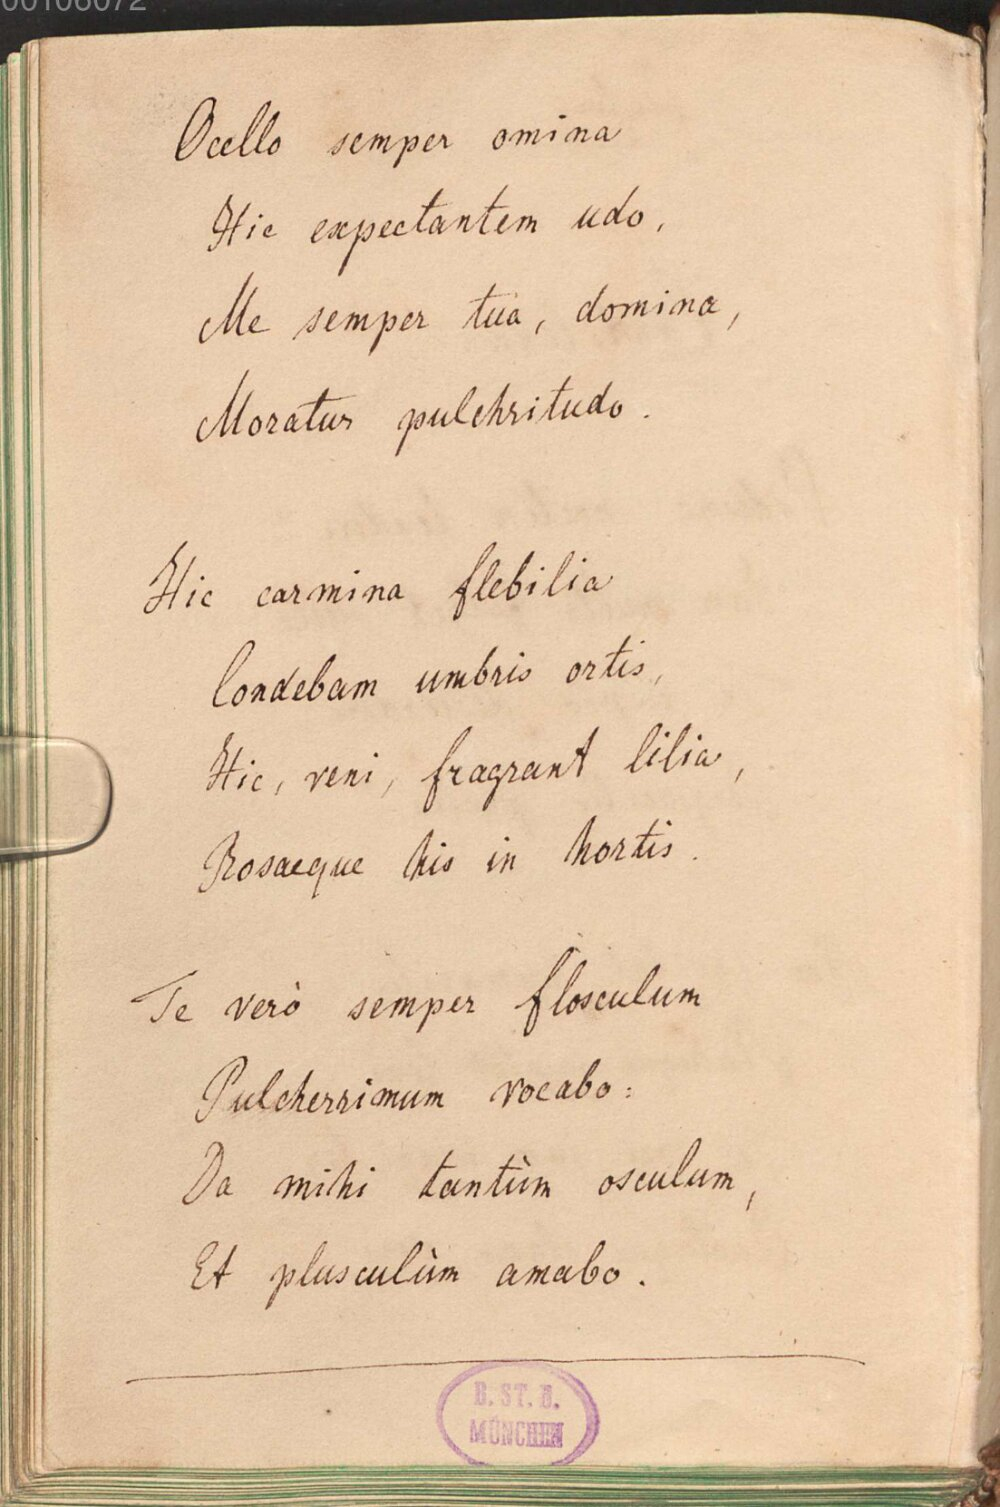 00106072
Ocello semper omina
Hic expectantem udo,
Me semper tua, domina,
Moratur pulchritudo.
Hic carmina flebilia
Condebam umbris ortis,
Hic, veni, fragrant lilia,
Rosaeque his in hortis.
Te verò semper flosculum
Pulcherrimum vocabo:
Da mihi tantùm osculum,
Et plusculùm amabo.
B. ST. B.
MÜNCHEN